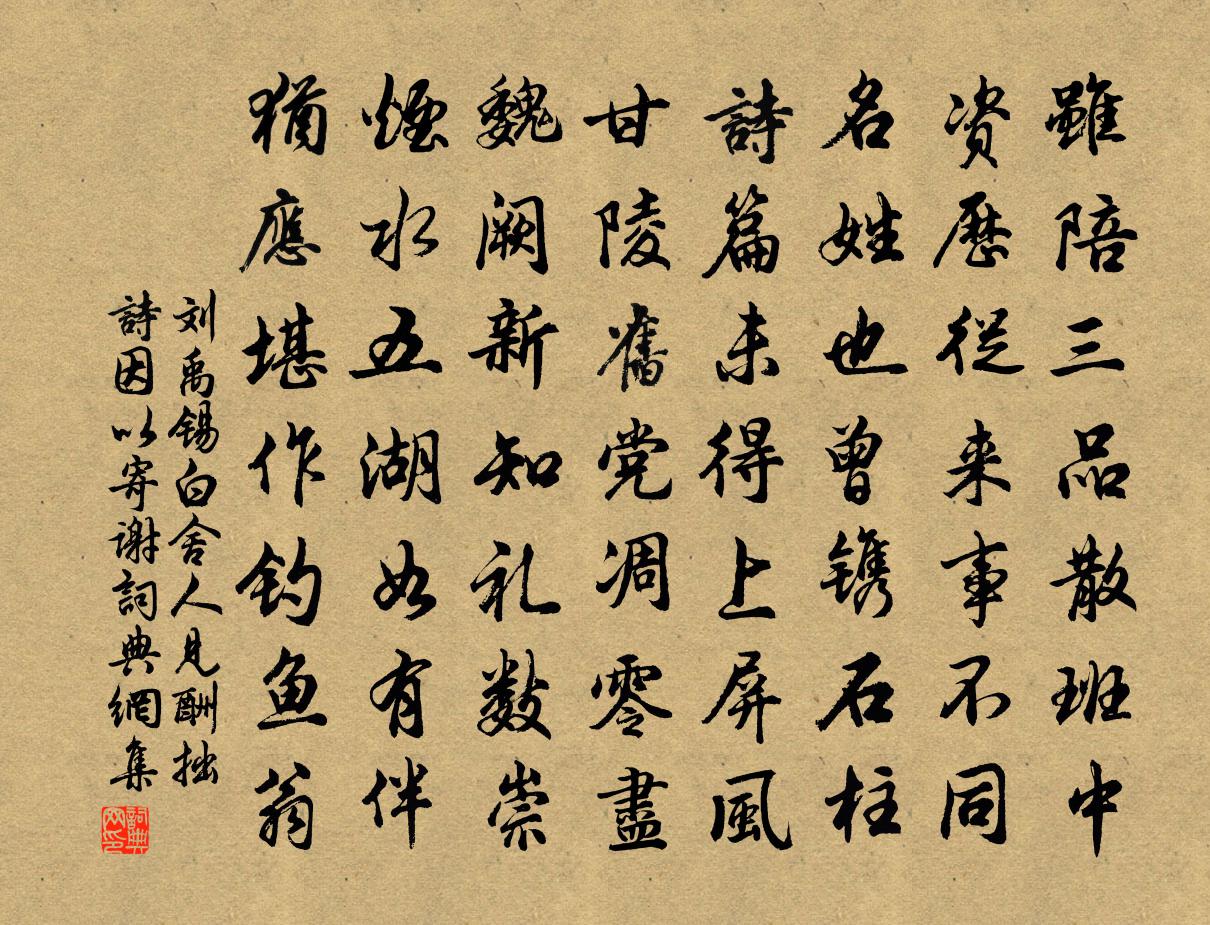 雖陪三品散班中
资歷從来事不同
名姓也曾镌石柱
詩篇未得上屏風
甘陵舊党凋零盡
魏阙新知礼数崇
煙水五湖如有伴
猶應堪作钓鱼翁
刘禹锡白舍人見酬拙
詩因以寄谢詞典網集
詞典网印